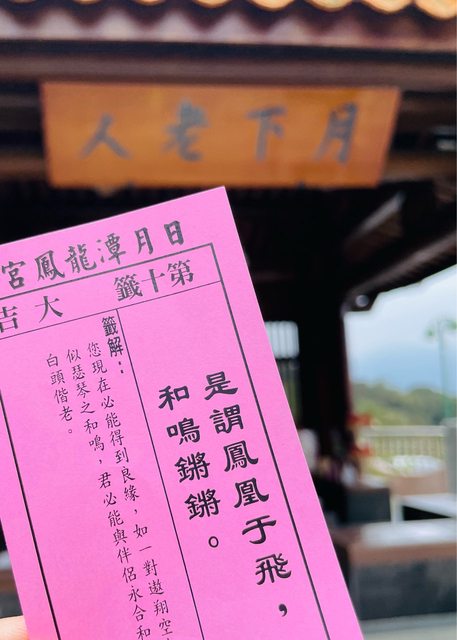 月下老人
日月潭龍鳳宮
第十籤 大吉
是謂鳳凰于飛，
和鳴鏘鏘。
籤解：
您現在必能得到良緣，如一對遨翔空
似瑟琴之和鳴，君必能與伴侶永合和
白頭偕老。